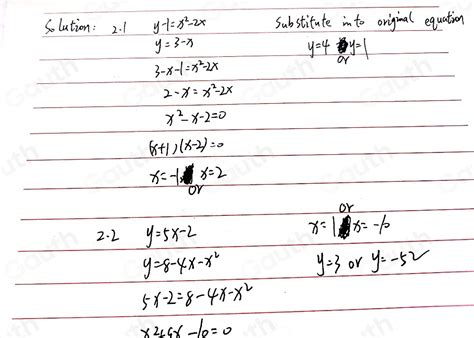 Solution: 2.1 y-1=x²-2x
y=3-x
3-x-1=x²-2x
2-x=x²-2x
x²-x-2=0
(x+1)(x-2)=0
x=-1 or x=2
Substitute into original equation
y=4 or y=1
2.2 y=5x-2
y=8-4x-x²
5x-2=8-4x-x²
x²+9x-10=0
x=1 or x=-10
y=3 or y=-52
Gauth